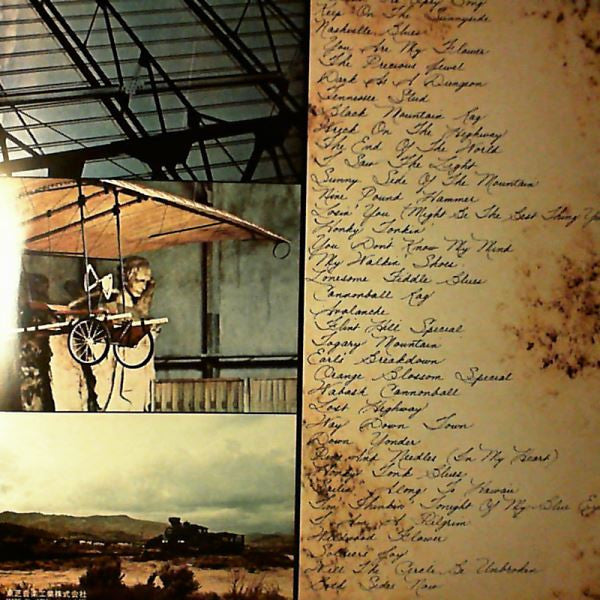 Keep On The Sunnyside
Nashville Blues
You Are My Flower
The Precious Jewel
Dark As A Dungeon
Tennessee Stud
Black Mountain Rag
Wreck On The Highway
The End Of The World
I Saw The Light
Sunny Side Of The Mountain
Nine Pound Hammer
Losin' You (Might Be The Best Thing
Honky Tonkin'
You Don't Know My Mind
My Walkin' Shoes
Lonesome Fiddle Blues
Cannonball Rag
Avalanche
Flint Hill Special
Togary Mountain
Earl's Breakdown
Orange Blossom Special
Wabash Cannonball
Lost Highway
Way Down Town
Down Yonder
Pins And Needles (In My Heart)
Honky Tonk Blues
Sailin' Along To Hawaii
I'm Thinkin' Tonight Of My Blue
I Am A Pilgrim
Wildwood Flower
Soldier's Joy
Will The Circle Be Unbroken
Both Sides Now
東芝音楽工業株式会社